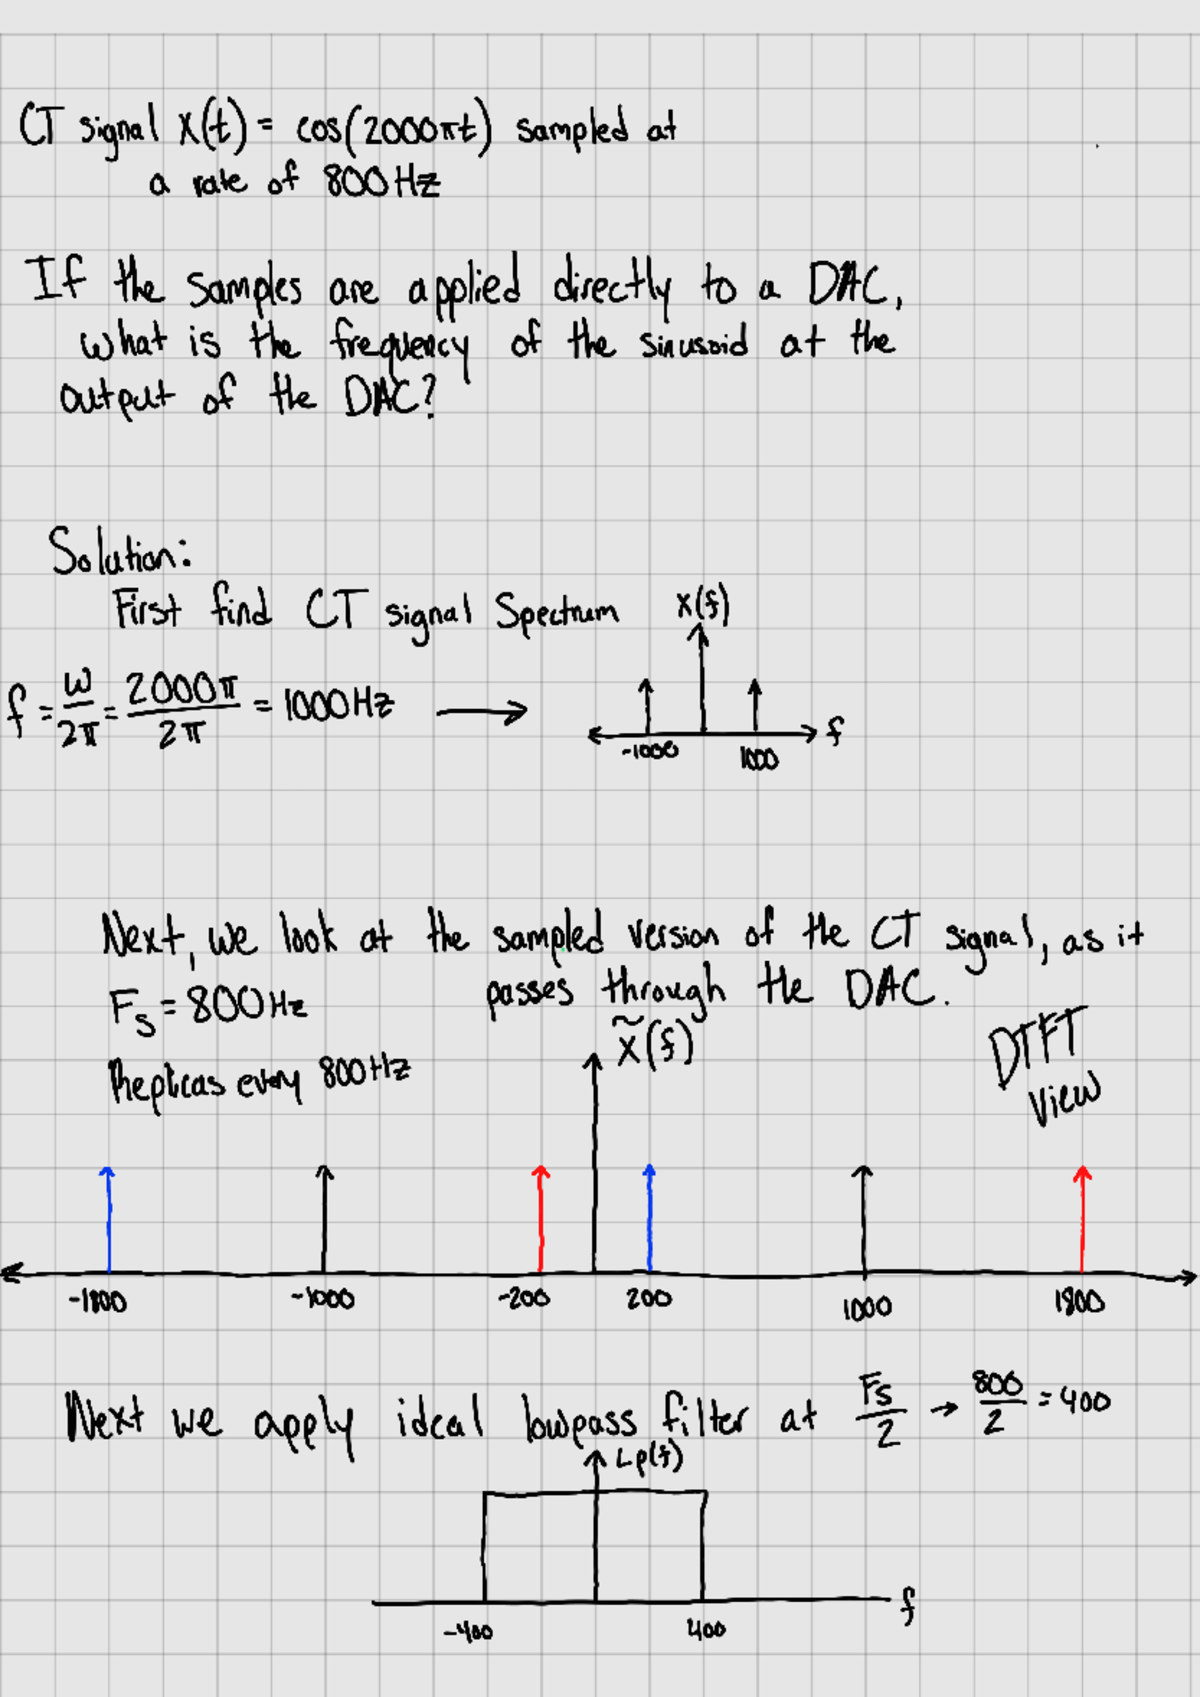 CT signal X(t) = cos(2000πt) sampled at
a rate of 800Hz
If the samples are applied directly to a DAC,
what is the frequency of the sinusoid at the
output of the DAC?
Solution:
First find CT signal Spectrum
X(f)
f = ω/2π = 2000π/2π = 1000Hz →
f
-1000 1000
Next, we look at the sampled version of the CT signal, as it
passes through the DAC.
Fs = 800Hz
X̃(f)
DTFT
View
Replicas every 800Hz
-1800 -1000 -200 200 1000 1800
Next we apply ideal lowpass filter at Fs/2 → 800/2 = 400
Lp(f)
f
-400 400